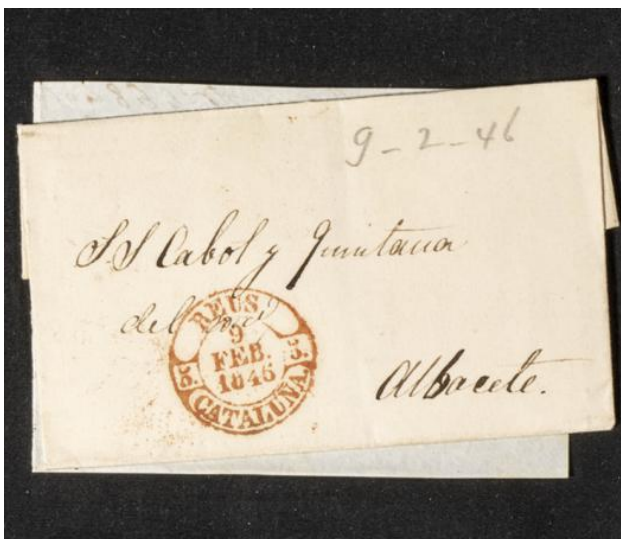 9-2-46
S.S. Cabot y Quintana
del
REUS.
9
FEB.
1846
CATALUÑA.
Albacete.